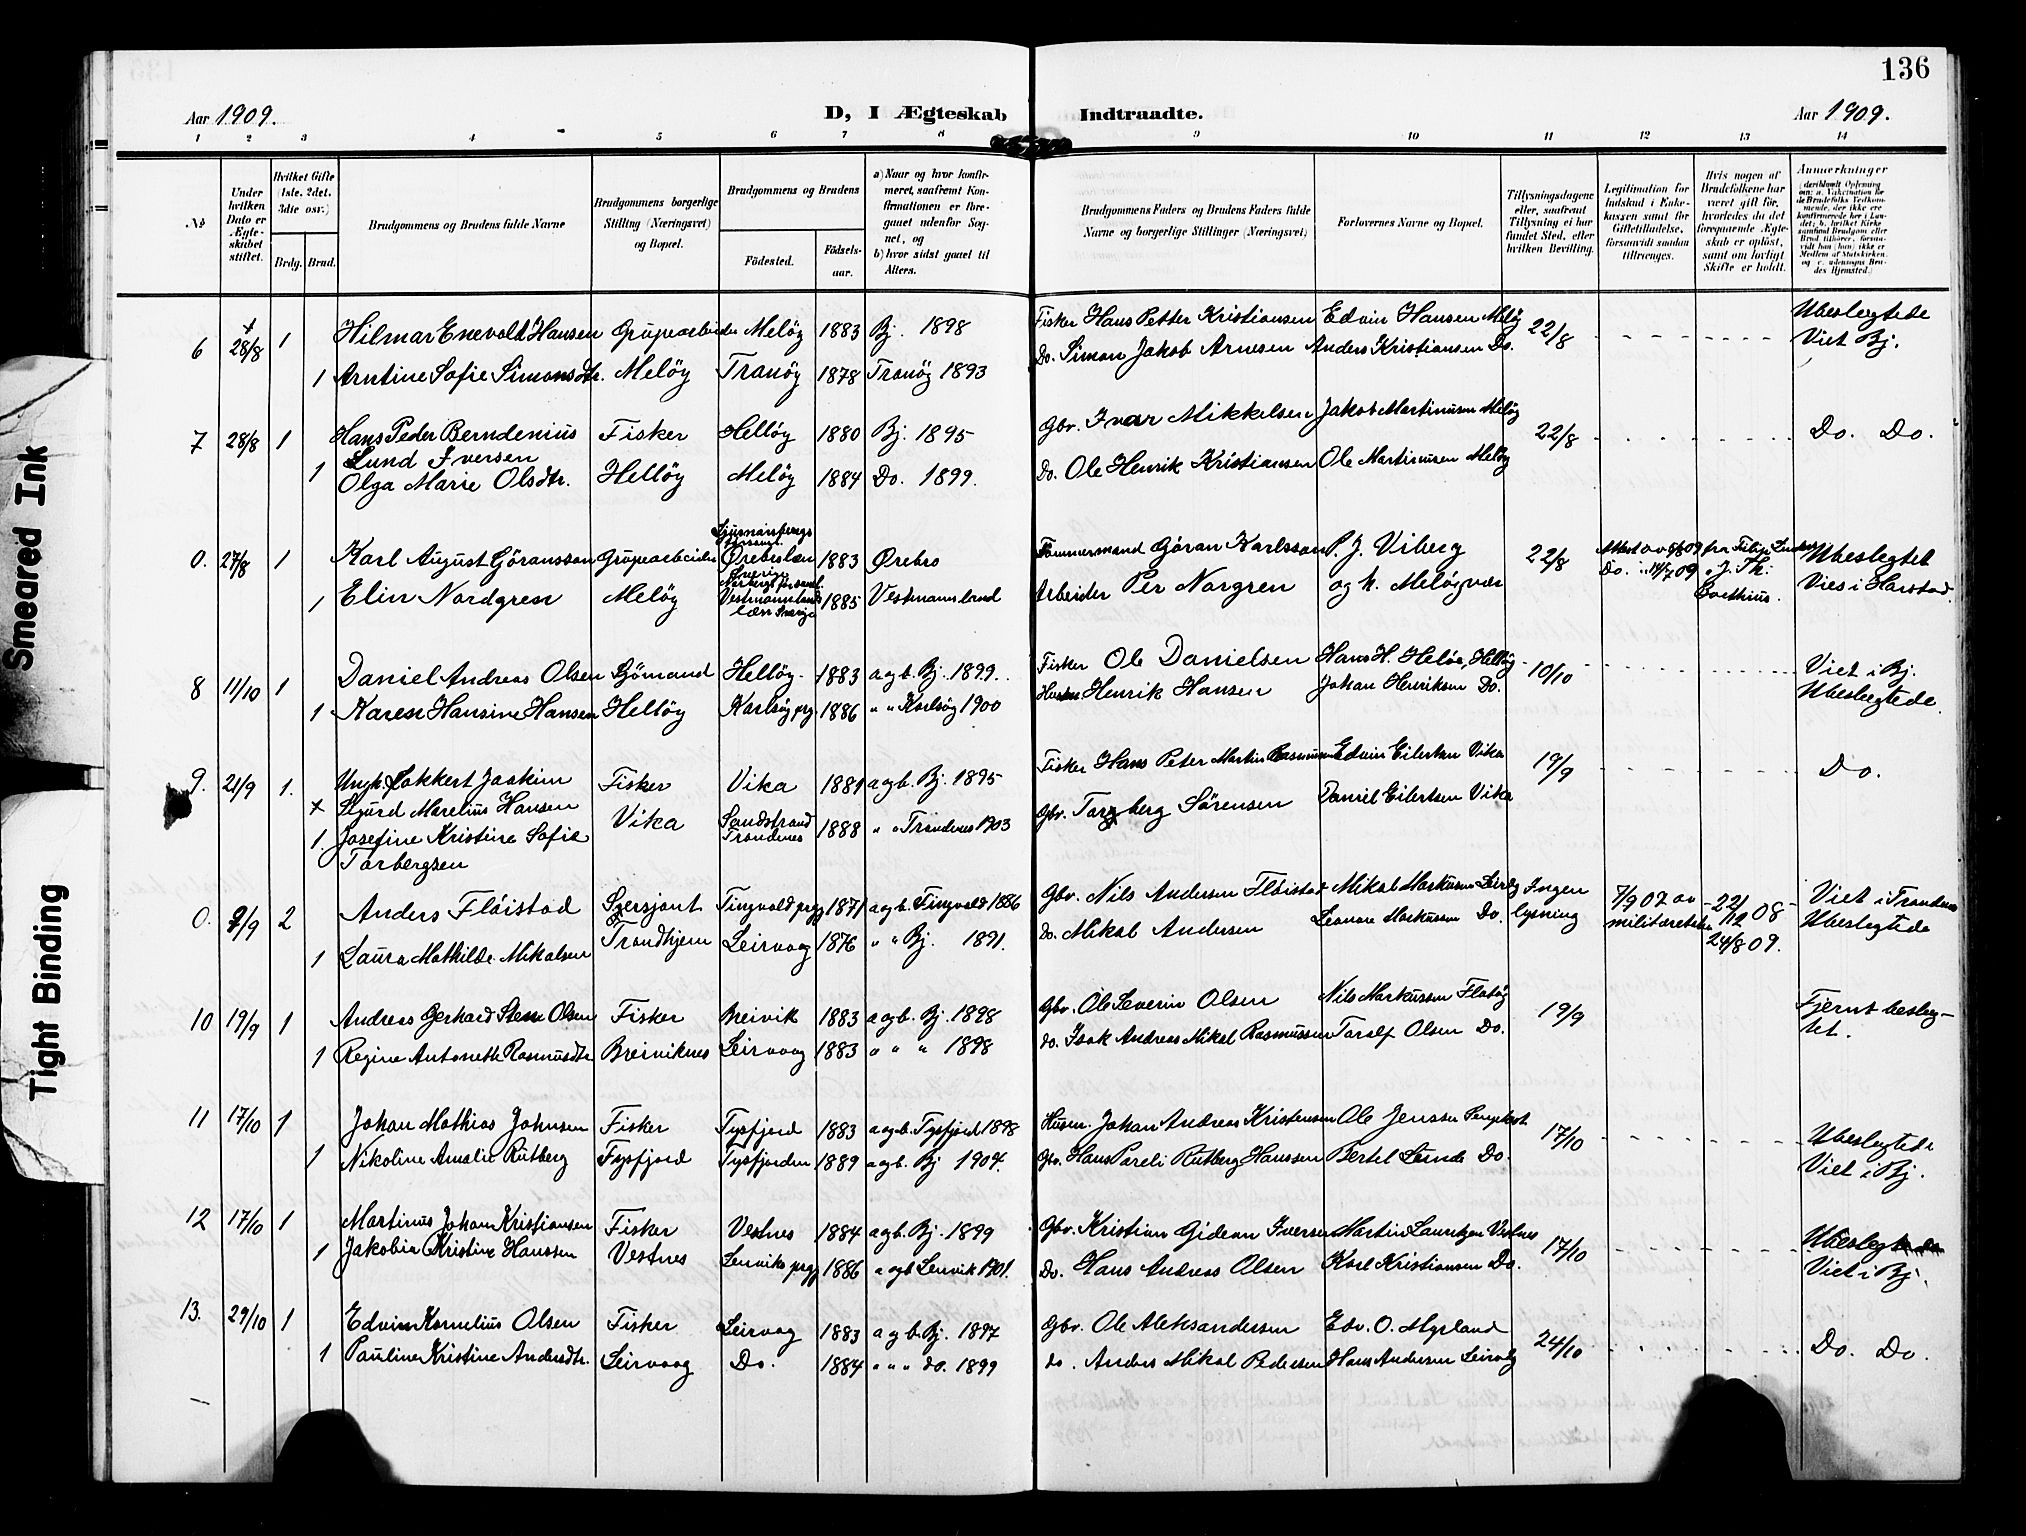 136
Aar 1909.
D, I Ægteskab Indtraadte.
Aar 1909.
1 2 3 4 5 6 7 8 9 10 11 12 13 14
No
Under hvilken Dato er Ægteskabet stiftet.
Hvilket Gifte (1ste, 2det, 3die osv.)
Brdg. Brud.
Brudgommens og Brudens fulde Navne
Brudgommens borgerlige Stilling (Næringsvei) og Bopæl.
Brudgommens og Brudens
Födested.
Födsels-aar.
a) Naar og hvor konfirmeret, saafremt Konfirmationen er foregaaet udenfor Sognet, og
b) hvor sidst gaaet til Alters.
Brudgommens Faders og Brudens Faders fulde Navne og borgerlige Stillinger (Næringsvei)
Forlovernes Navne og Bopæl.
Tillysningsdagene eller, saafremt Tillysning ei har fundet Sted, efter hvilken Bevilling.
Legitimation for Indskud i Enkekassen samt for Giftetilladelse, forsaavidt saadan tiltrænges.
Hvis nogen af Brudefolkene har været gift för, hvorledes da det foregaaende Ægteskab er oplöst, samt om lovligt Skifte er holdt.
Anmerkninger
6 28/8 1 Hilmar Enevolt Hansen Grupearbeider Melöy 1883 Bj. 1898 Fisker Hans Petter Kristiansen Edvin Hansen Melöy 22/8 Ubeslegtede
1 Arntine Sofie Simonsdtr. Melöy Tranöy 1878 Tranöy 1893 Do. Simon Jakob Arnesen Anders Kristiansen Do. Viet Bj.
7 28/8 1 Hans Peder Berndenius Lund Iversen Fisker Hellöy 1880 Bj. 1895 Gbr. Ivar Mikkelsen Jakob Martinusen Melöy 22/8 Do. Do.
1 Olga Marie Olsdtr. Hellöy Melöy 1884 Do. 1899. Do. Ole Henrik Kristiansen Ole Martinusen Melöy
0. 27/8 1 Karl August Göransson Grupearbeider Örebro län 1883 Örebro Tömmermand Göran Karlsson P. J. Viberg 22/8 Ubeslegtet
1 Elin Nordgren Melöy Vestmannlands län Sverige 1885 Vestmannland Arbeider Per Norgren og h. Melöyvær Vies i Harstad.
8 11/10 1 Daniel Andreas Olsen Sjömand Hellöy 1883 a og b. Bj. 1899. Fisker Ole Danielsen Hans H. Helöe, Hellöy 10/10 Viet i Bj.
1 Karen Hansine Hansen Hellöy Karlsöy prg. 1886 " " Karlsöy 1900 Henrik Hansen Johan Henriksen Do. Ubeslegtede.
9. 21/9 1. Ungk. Lokkert Joakim Fisker Vika 1881 a og b. Bj. 1895 Fisker Hans Peter Martin Rasmussen Edvin Eilertsen Vika 19/9 Do.
x Sigurd Marelius Hansen
1. Josefine Kristine Sofie Torbergsen Vika Sandstrand Trondenes 1888 " " Trondenes 1903 Gbr. Torberg Sörensen Daniel Eilertsen Vika
0. 9/9 2 Anders Flöistad Sersjant Tingvold prgj 1871 a og b. Tingvold 1886 Gbr. Nils Andersen Flöistad Mikal Markussen Leirvåg Ingen lysning 7/9 07 av militæretaten 22/12 08 24/8 09. Viet i Trondenes
1 Laura Mathilde Mikalsen Trondhjem Leirvaag 1876 " " Bj. 1891. Do. Mikal Andersen Leonore Markussen Do. Ubeslegtede
10 19/9 1 Andreas Gerhard Steen Olsen Fisker Breivik 1883 a og b. Bj. 1898 Gbr. Ole Severin Olsen Nils Markussen Flatöy 19/9 Fjernt beslegtet.
1 Regine Antonette Rasmusdtr. Breiviknes Leirvaag 1883 " " " 1898 do. Isak Andreas Mikal Rasmussen Toralf Olsen Do.
11 17/10 1 Johan Mathias Johnsen Fisker Tysfjord 1883 a og b. Tysfjord 1898 Husm. Johan Andreas Kristensen Ole Jenssen 17/10 Ubeslegtede
1 Nikoline Amalie Rutberg Tysfjord Tysfjorden 1889 a og b. Bj 1904. Gbr. Hans Pareli Rutberg Hanssen Bertel Lund Do. Viet i Bj.
12 17/10 1 Martinus Johan Kristiansen Fisker Vestnes 1884 a og b. Bj. 1899 Gbr. Kristian Gidean Iversen Martin Lauritzen Vestnes 17/10
1 Jakobia Kristine Hanssen Vestnes Lenvik prgj 1886 " og b Lenvik 1901. Do. Hans Andreas Olsen Karl Kristiansen Do. Viet i Bj.
13. 29/10 1 Edvin Kornelius Olsen Fisker Leirvag 1883 a og b. Bj. 1897 Gbr. Ole Aleksandersen Edv. O. Myrland 24/10 Do. Do.
1 Pauline Kristine Andersdtr. Leirvaag Do. 1884 " " " do. 1899 do. Anders Mikal Pedersen Hans Andersen Leirvåg
Smeared Ink
Tight Binding